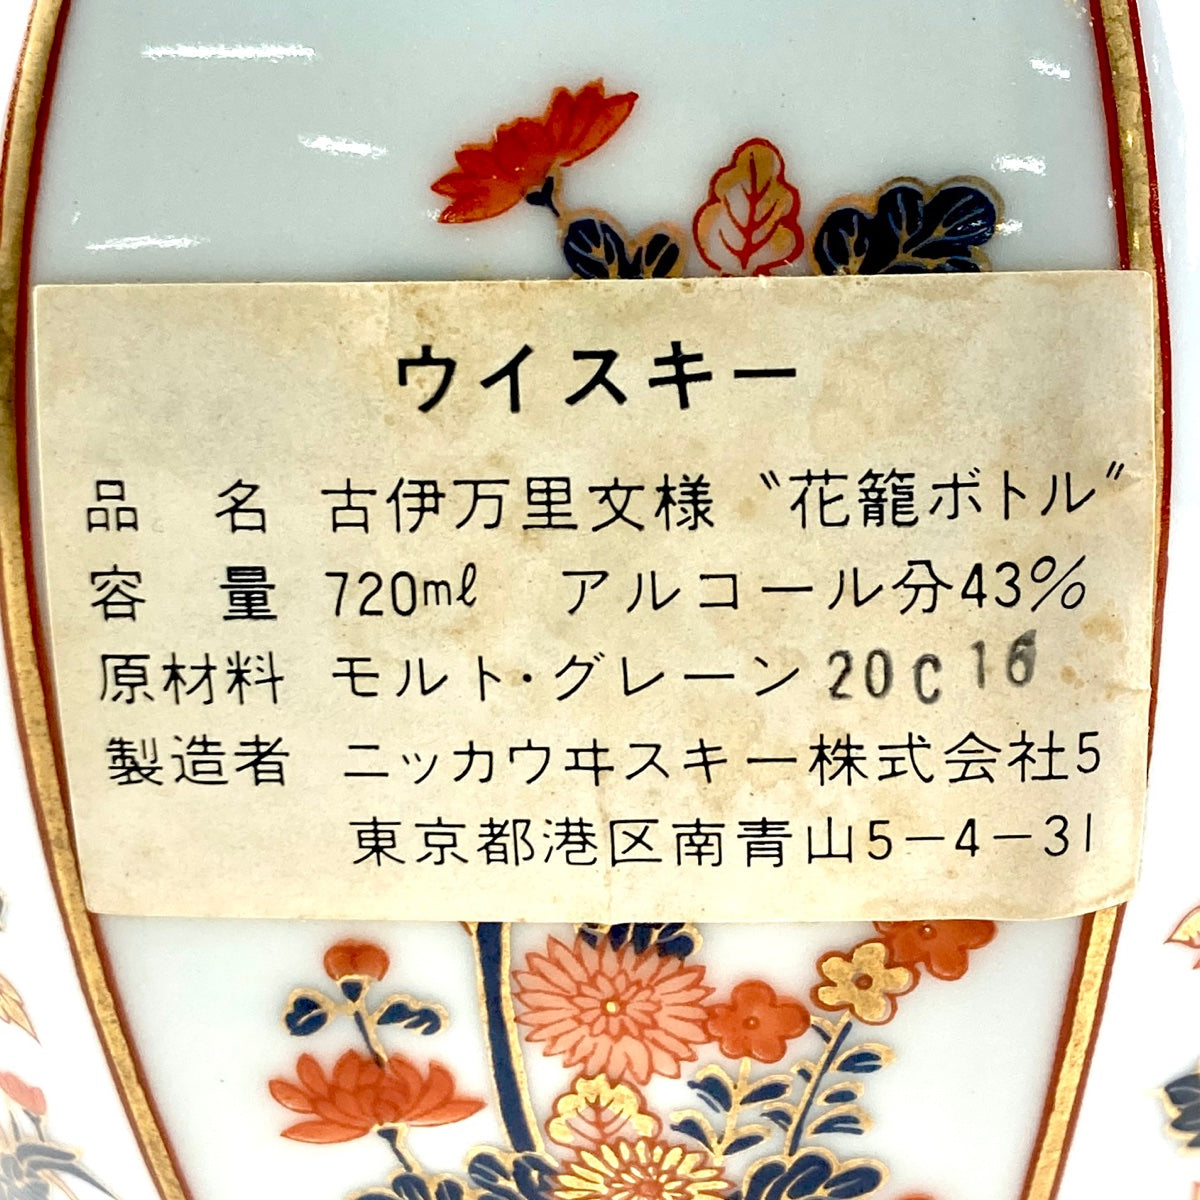 ウイスキー
品名 古伊万里文様〝花籠ボトル〞
容量 720ml アルコール分43%
原材料 モルト・グレーン 20C16
製造者 ニッカウヰスキー株式会社5
東京都港区南青山5-4-31